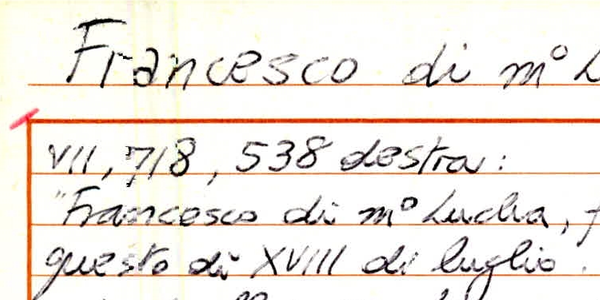 Francesco di m° L
VII, 718, 538 destra:
"Francesco di m° Lucha, f
questo dì XVIII di luglio.